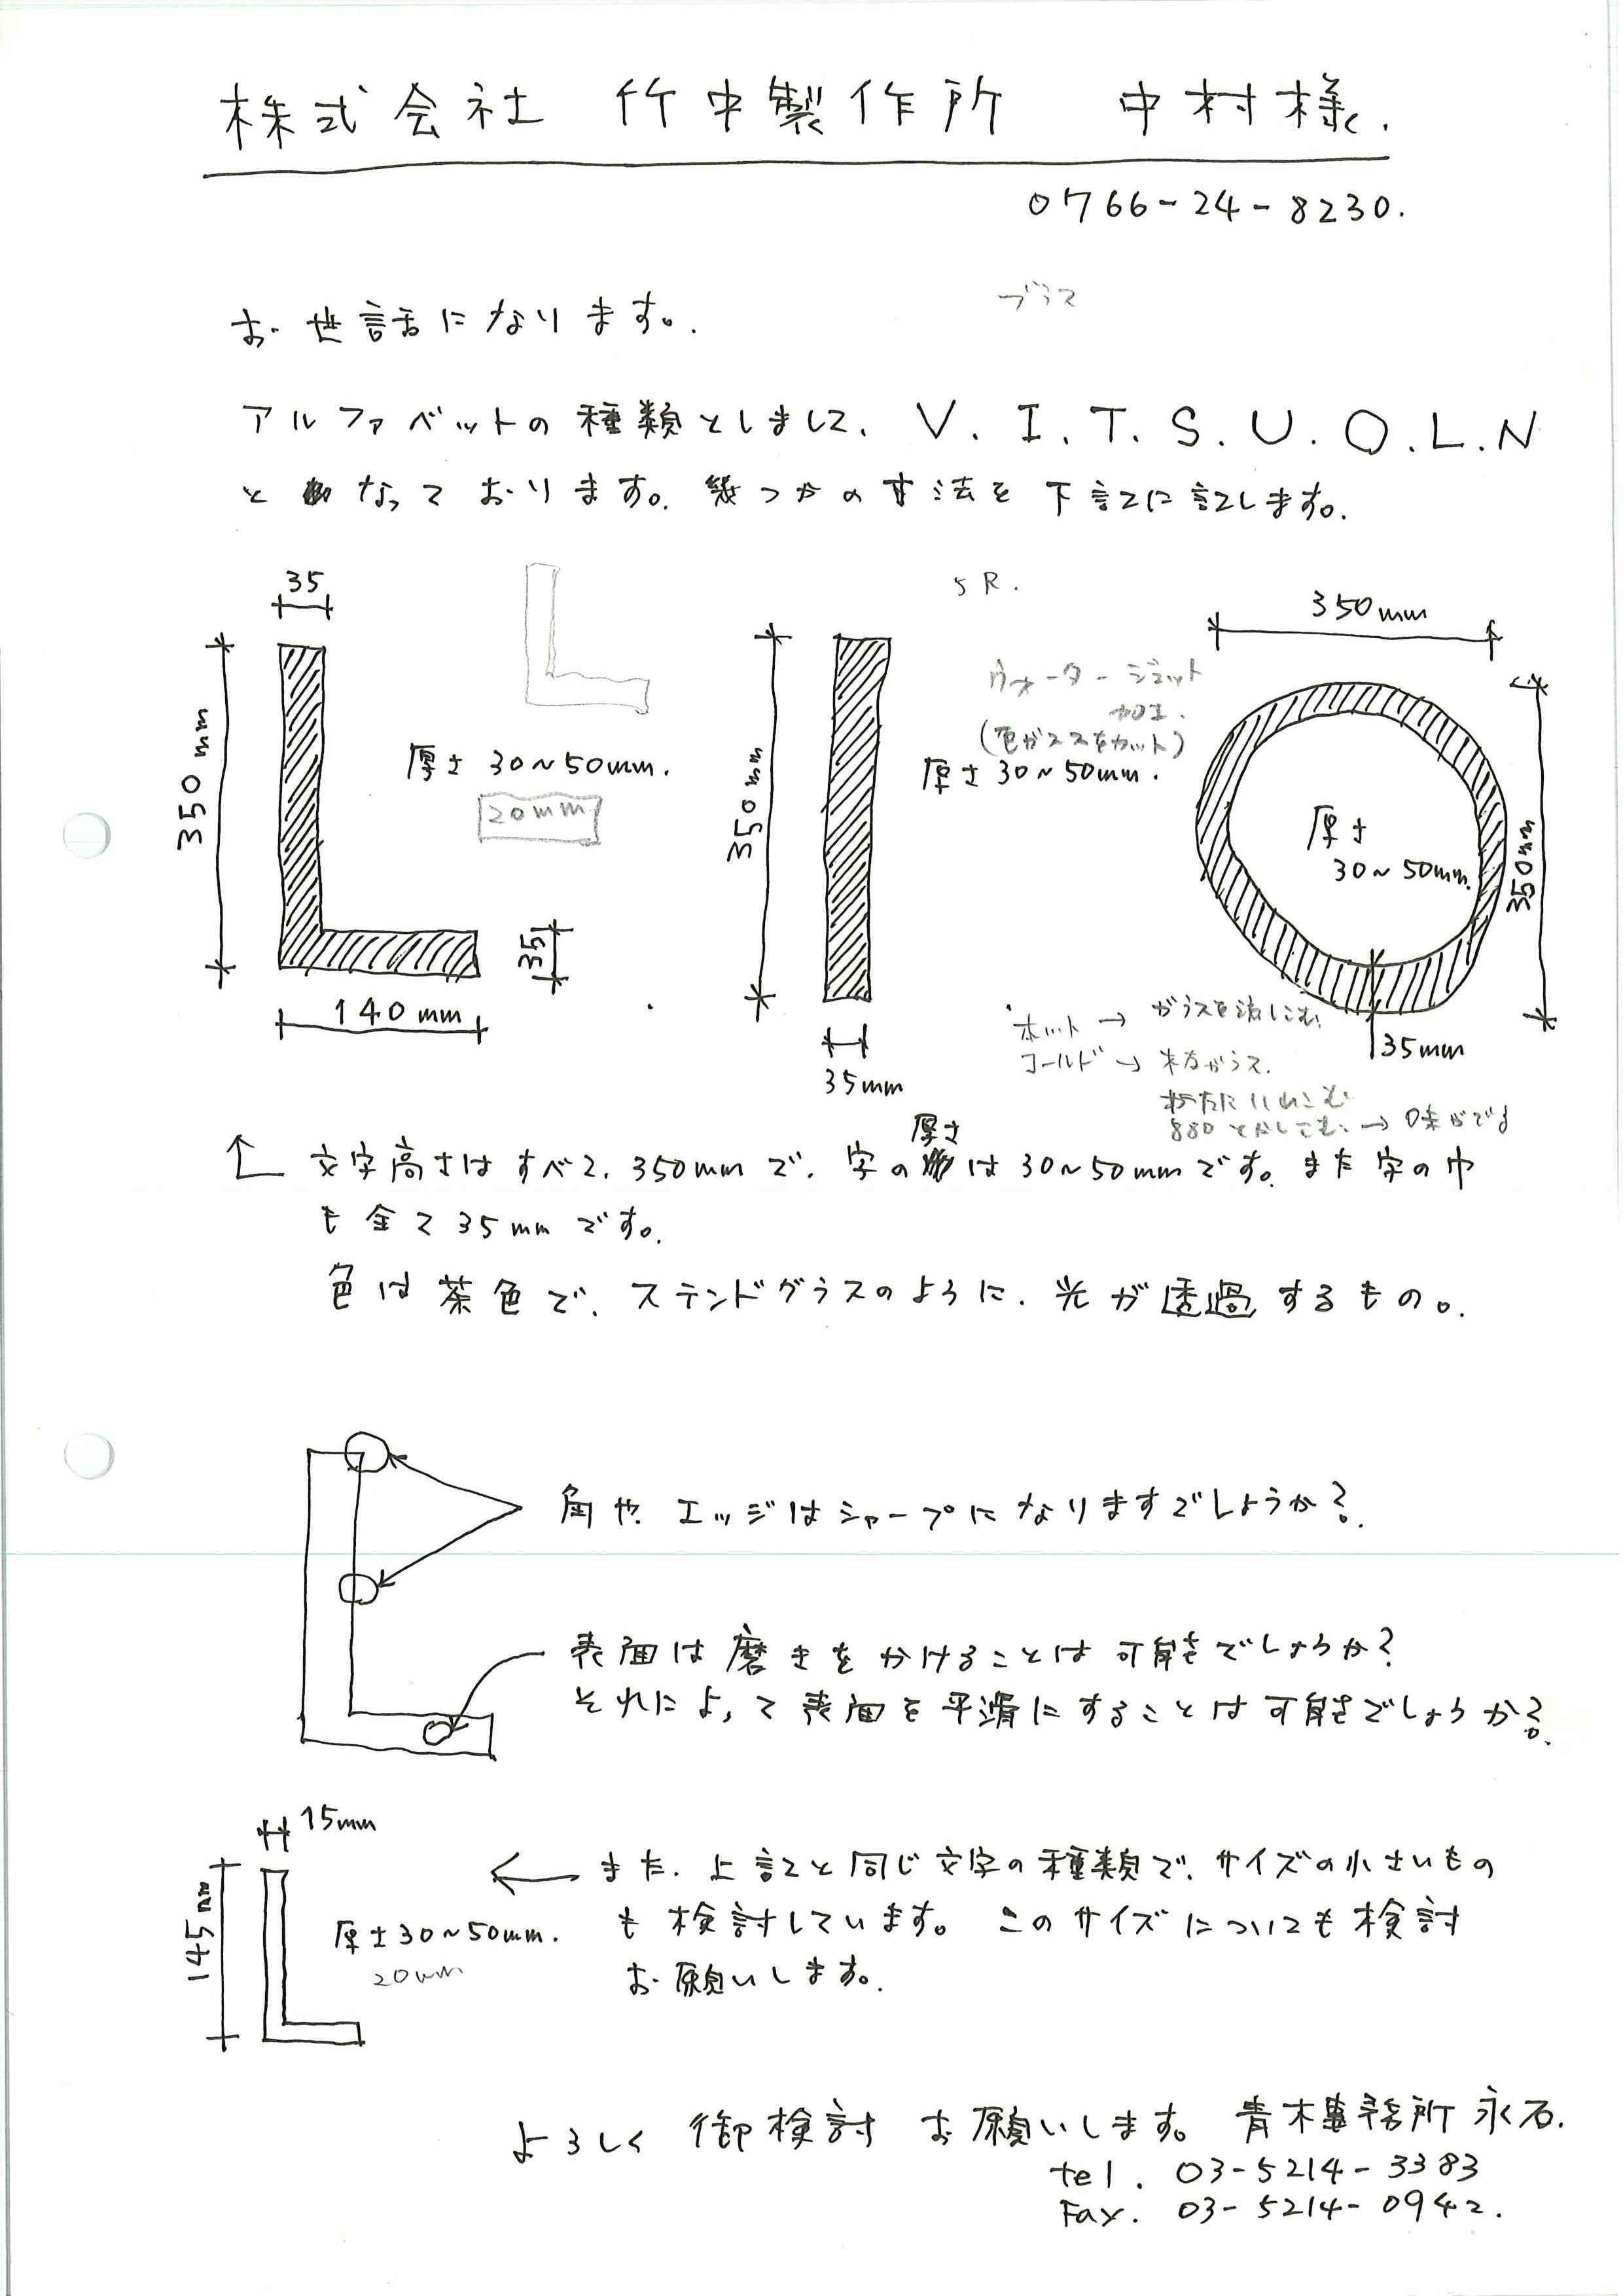 株式会社 竹中製作所 中村様.
0766-24-8230.
ブラス
お世話になります。
アルファベットの種類としまして、V. I. T. S. U. O. L. N
となっております。幾つかの寸法を下記に記します。
35
350mm
厚さ 30~50mm.
20mm
35
140mm
350mm
35mm
5R.
ウォータージェット
加工.
(色ガラスをカット)
厚さ 30~50mm.
350mm
350mm
厚さ
30~50mm.
35mm
ホット → ガラスを流しこむ
コールド → 粒ガラス.
880
文字高さはすべて、350mmで、字の厚さは30~50mmです。また字の巾
も全て35mmです。
色は茶色で、ステンドグラスのように、光が透過するもの。
角や、エッジはシャープになりますでしょうか?
表面は磨きをかけることは可能でしょうか?
それによって表面を平滑にすることは可能でしょうか?
15mm
145mm
厚さ30~50mm.
20mm
また、上記と同じ文字の種類で、サイズの小さいもの
も検討しています。このサイズについても検討
お願いします。
よろしく御検討お願いします。青木事務所 永石.
tel. 03-5214-3383
Fax. 03-5214-0942.